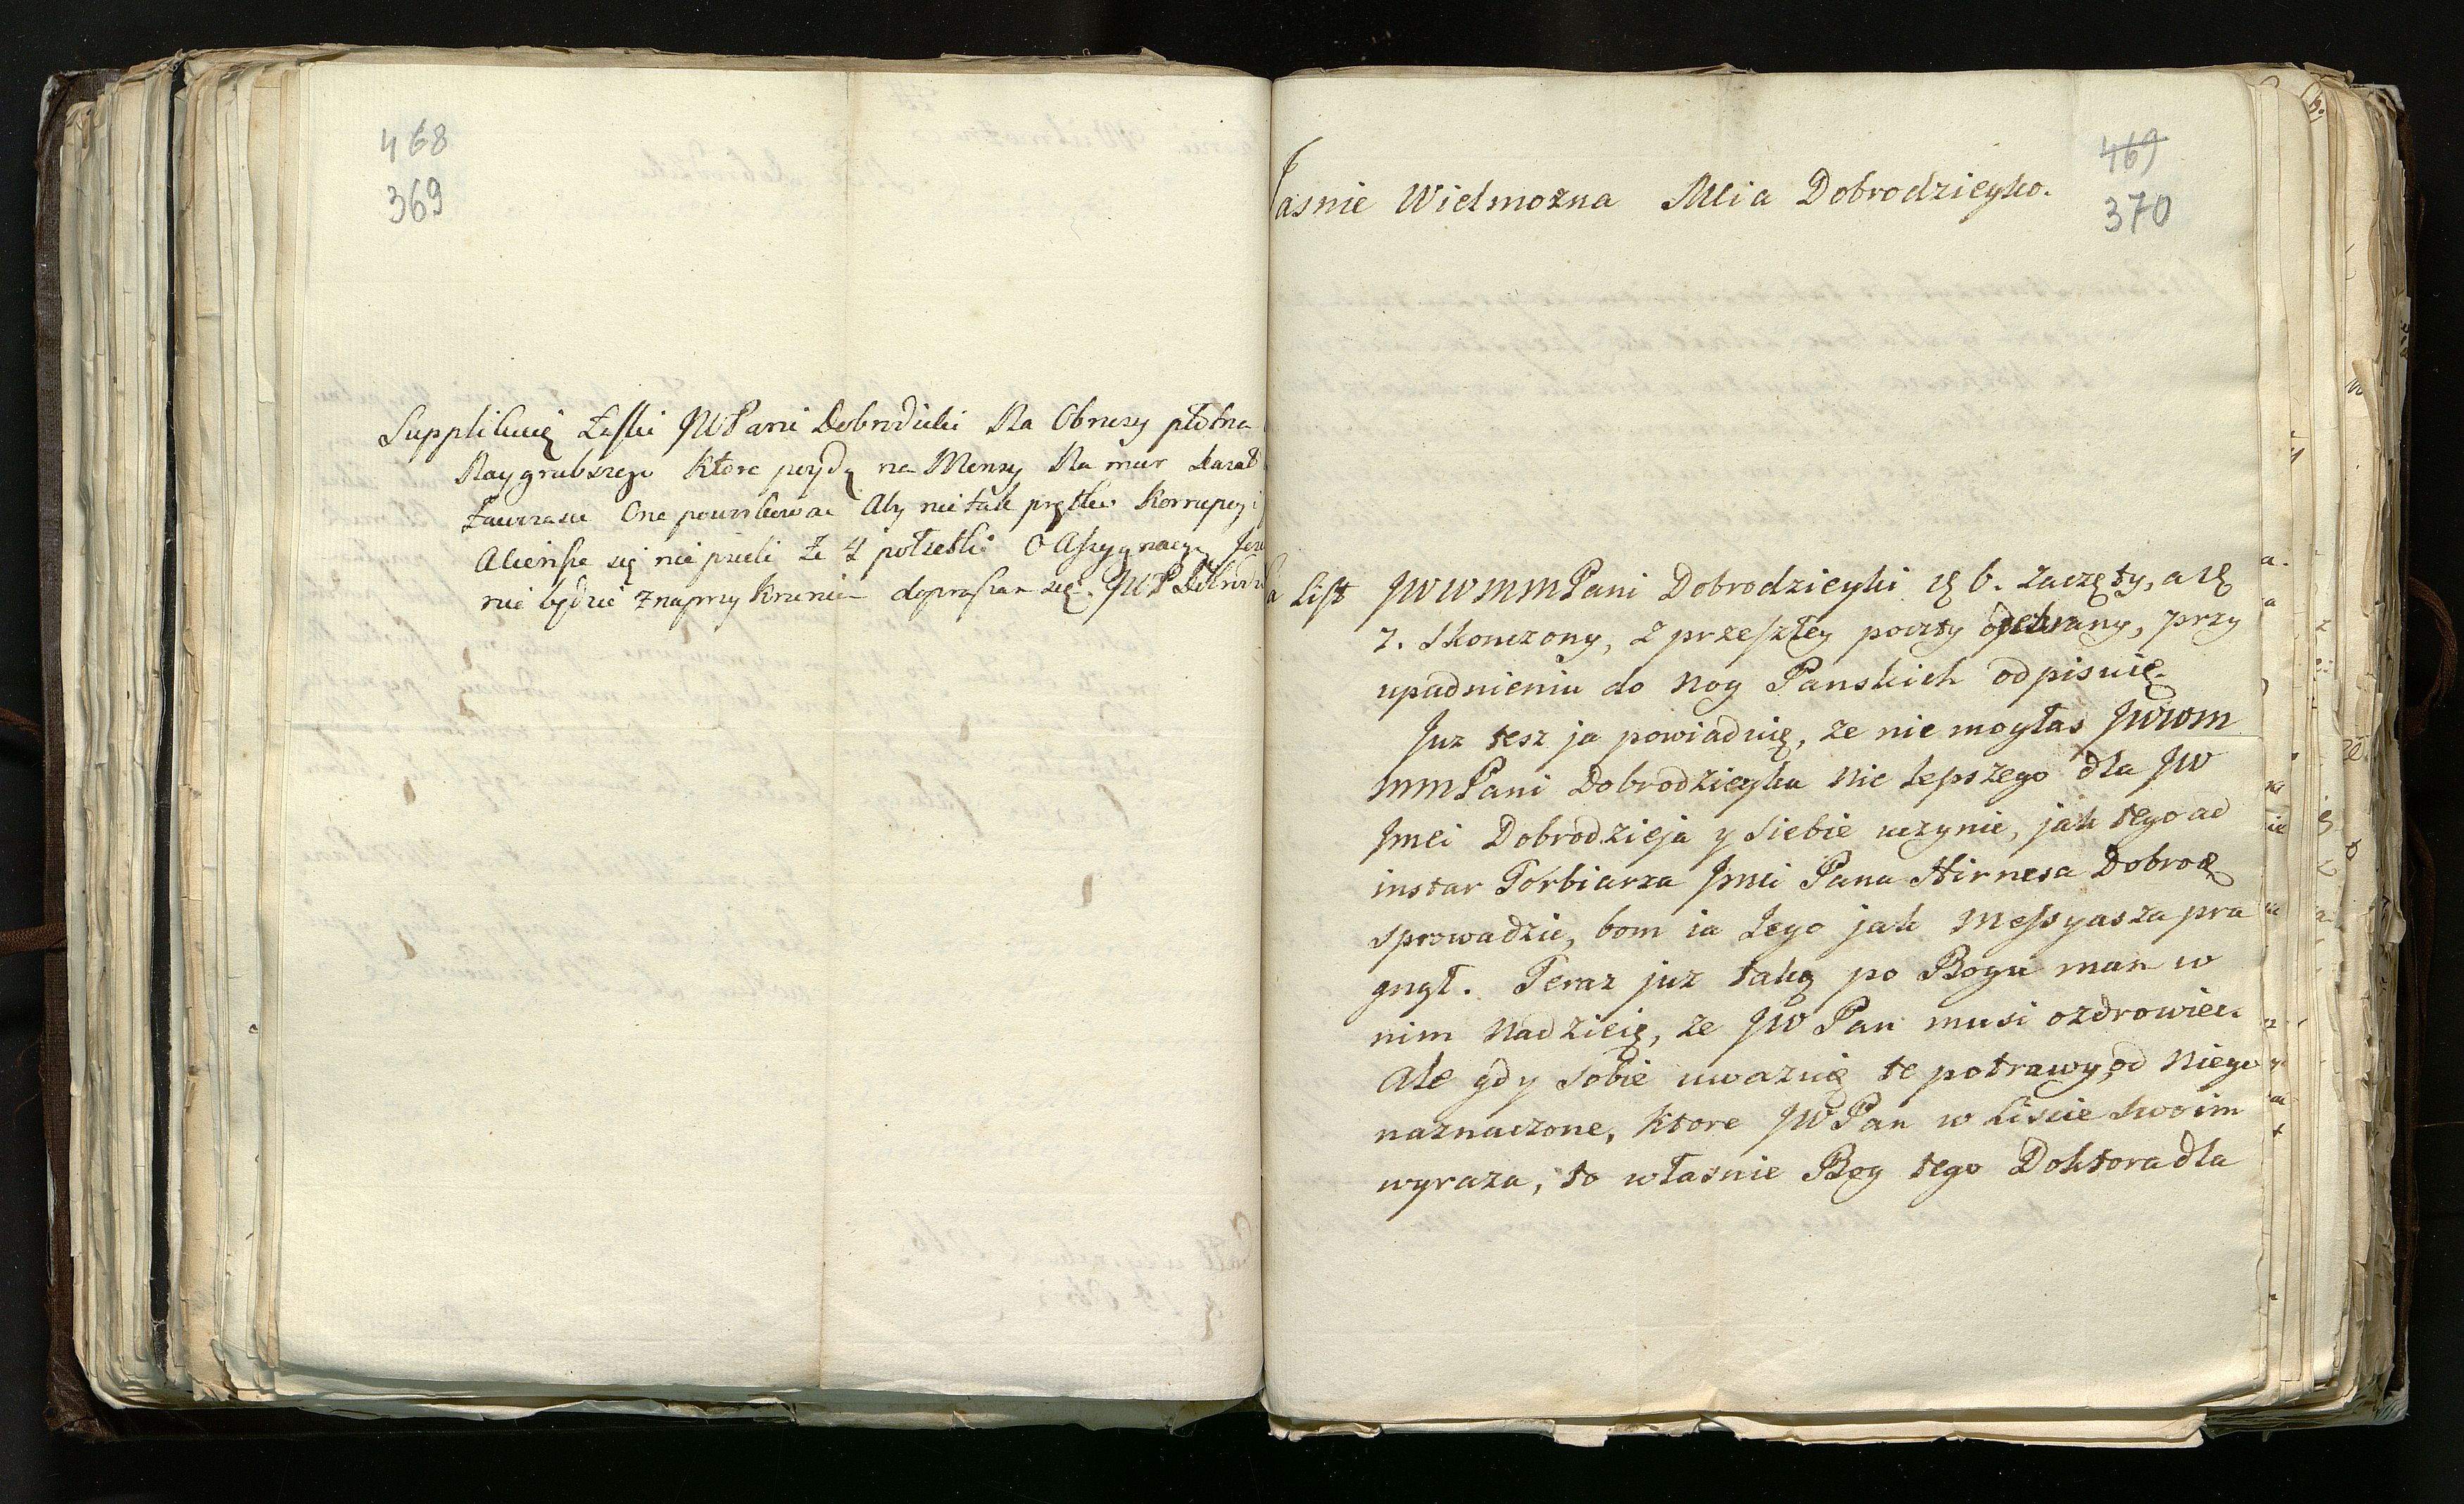 468
369
Supplikuię Łaſki JWPani Dobrodziki Na Obrusy płotna
Naygrubszego Ktore poydą na Mensy Na mur
Zawczasu One Aby nie tak prętko Korrupcyi
się nie psuli że 4 połsetki O Aſsygnacyą
nie będzie znaprzykrunim dopraſzam się. JWP Dobrodzi
469
370
Jasnie Wielmożna Mcia Dobrodzieyko.
a Liſt JWWMMPani Dobrodzieyki 6. Zaczęty, a
7. Skonczony, z przeſzłey poczty odebrany, przy
upadnieniu do Nog Panskich odpisuię.
Juz tesz ja powiaduię, ze nie mogłas JWWM
MMPani Dobrodzieyka Nic lepszego dla JW
Jmci Dobrodzieja y Siebie uczynic, jak tego ad
instar Torbiarza Jmci Pana Hirnesa Dobrod
sprowadzic, bom ia Jego jak Meſsyasza pra
gnął. Teraz juz taką po Bogu mam w
nim Nadzieię, ze JW Pan musi ozdrowiec.
Ale gdy Sobie uwazuię te potrawy od Niego
naznaczone, Ktore JWPan w Liscie Swoim
wyraza, to własnie Bog tego Doktora dla